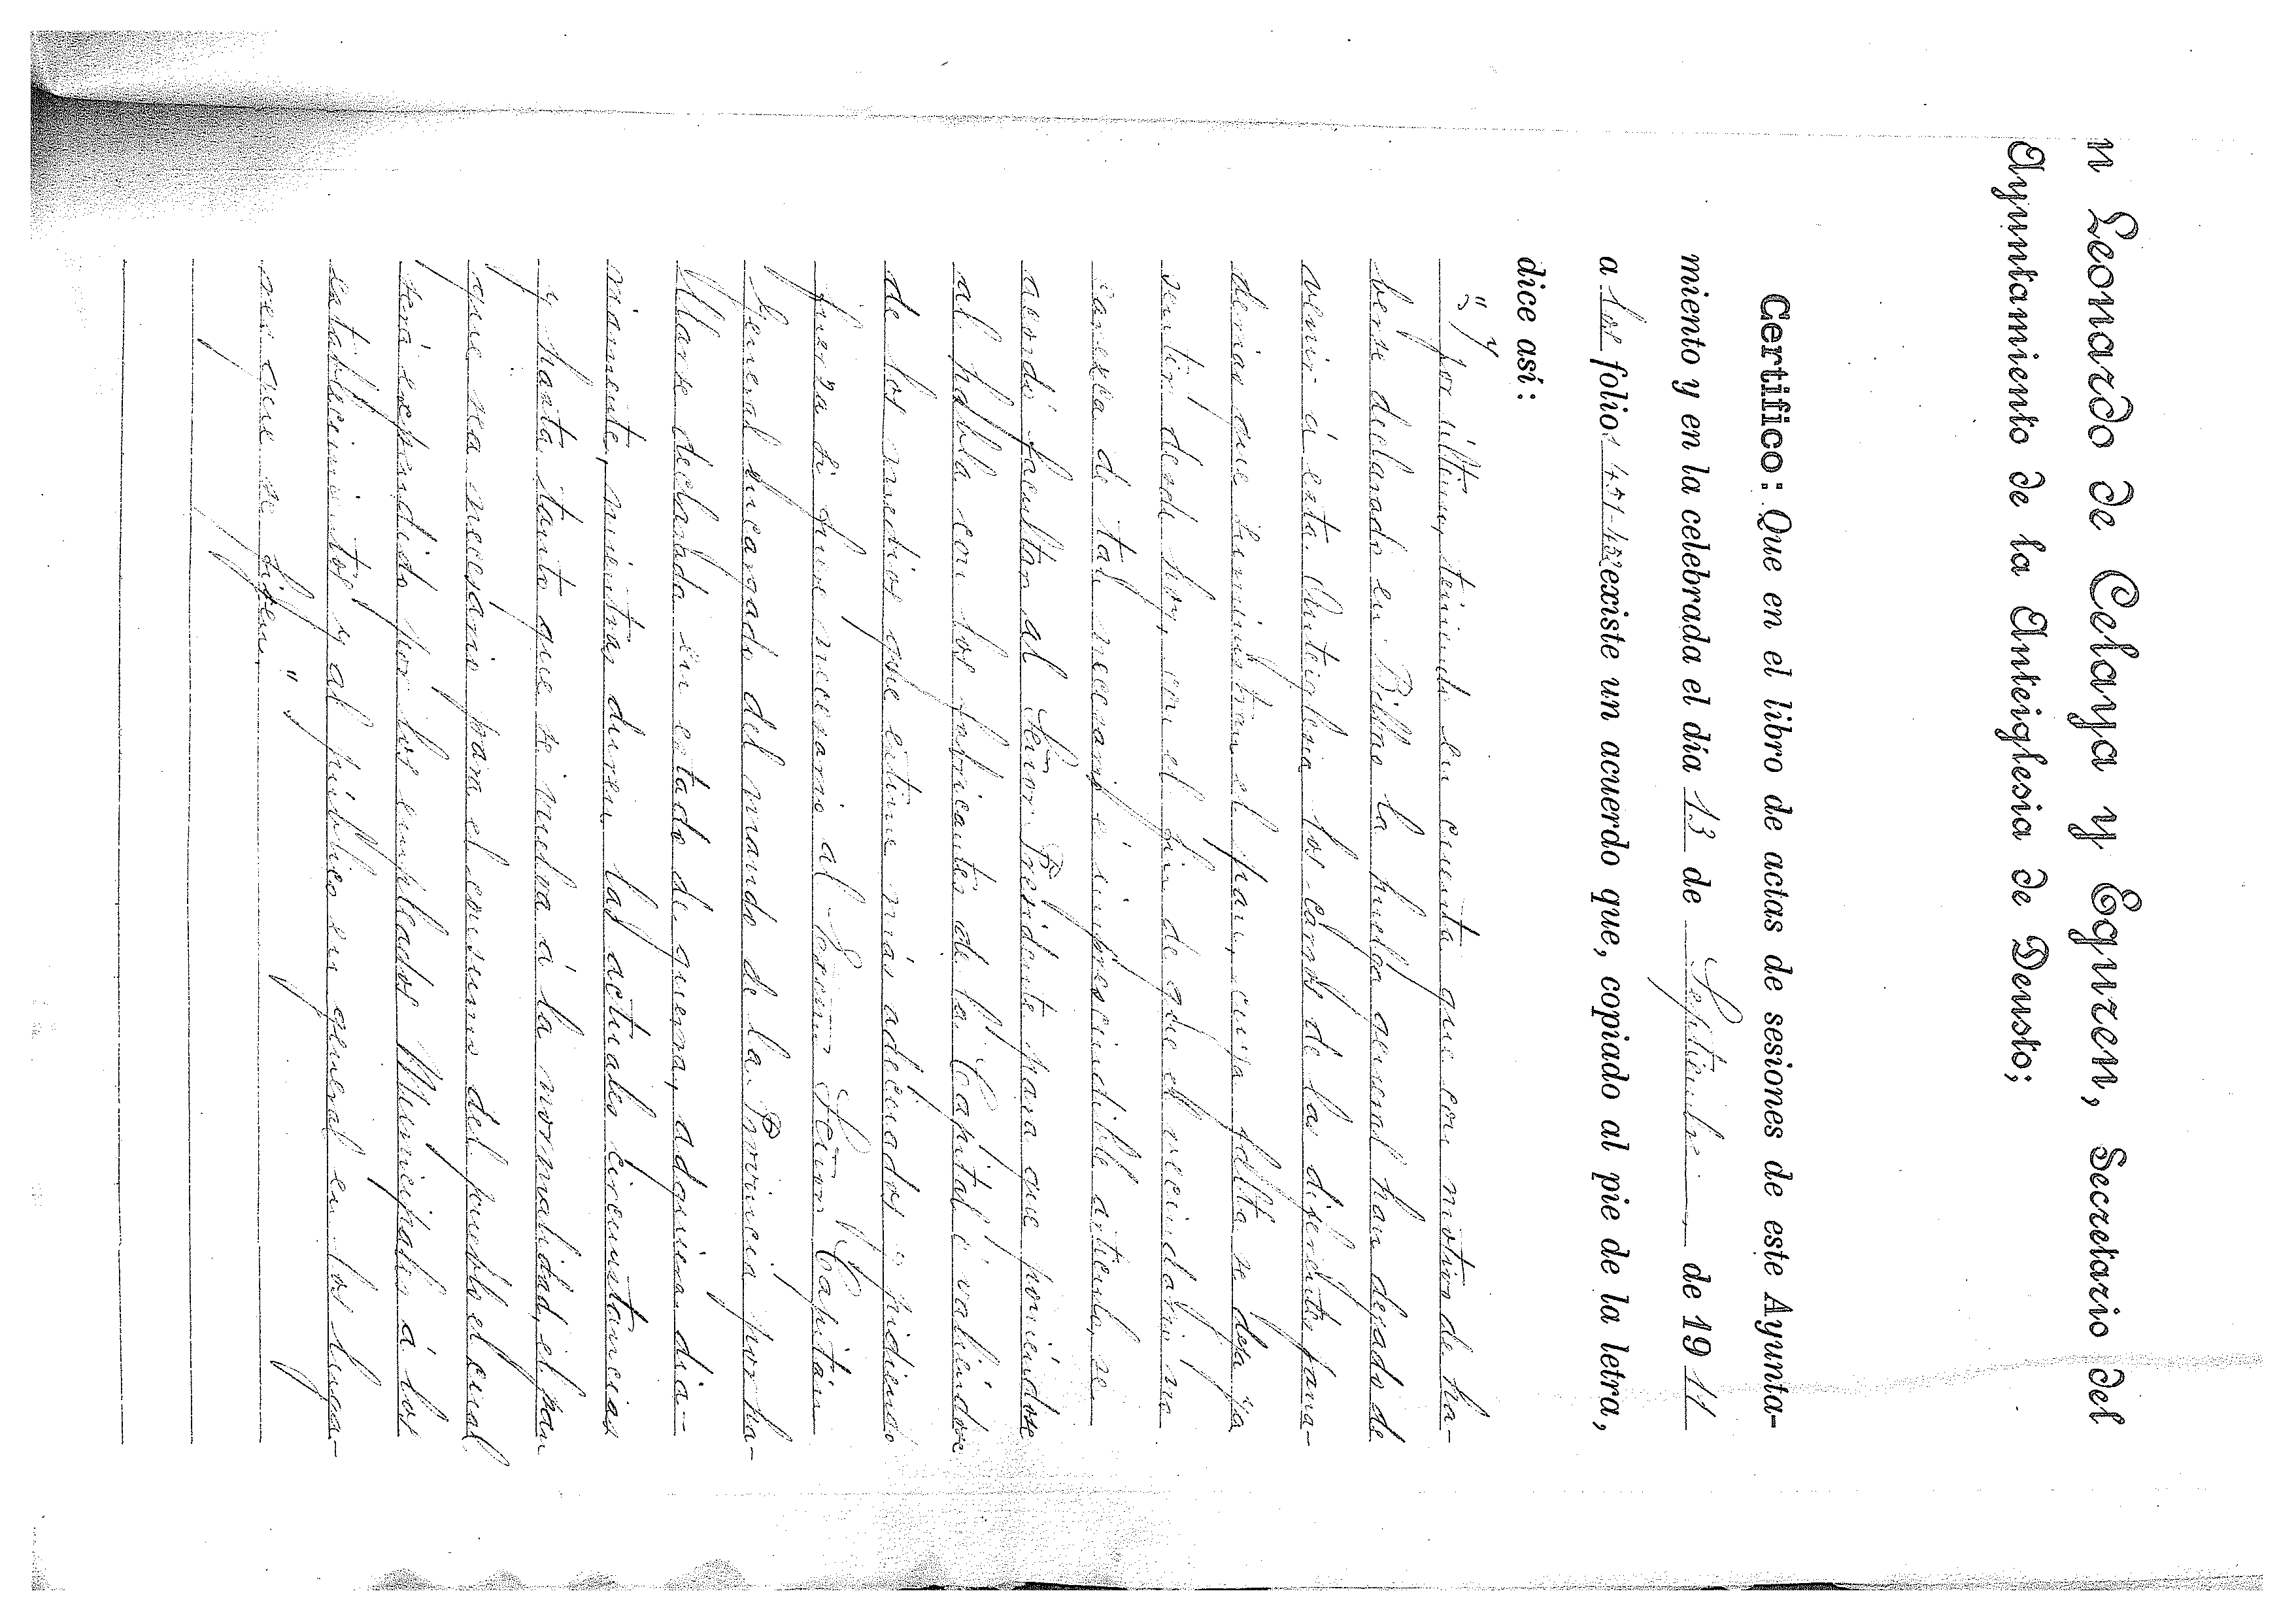 n Leonardo de Celaya y Eguren, Secretario del
Ayuntamiento de la Anteiglesia de Deusto;
Certifico: Que en el libro de actas de sesiones de este Ayunta-
miento y en la celebrada el día 13 de Septiembre de 1911
a los folios 451-452 existe un acuerdo que, copiado al pie de la letra,
dice así:
"Y por último, teniendo en cuenta que con motivo de ha-
berse declarado en Bilbao la huelga general han dejado de
venir á esta Anteiglesia los carros de las diferentes pana-
derias que suministran el pan, cuya falta se deja ya
sentir desde hoy, con el fin de que el vecindario no
carezca de tal necesario é imprescindible articulo, se
acordó facultar al Señor Presidente para que poniéndose
al habla con los fabricantes de la Capital ó valiéndose
de los medios que estime más adecuados y pidiendo
fuerza si fuere necesario al Excmo Señor Capitán
General encargado del mando de la Provincia por ha-
llarse declarada en estado de guerra, adquiera dia-
riamente, mientras duren las actuales circunstancias
y hasta tanto que se vuelva á la normalidad, el pan
que sea necesario para el consumo del pueblo el cual
será expendido por los empleados Municipales á los
establecimientos y al público en general en los luga-
res que se fijen."